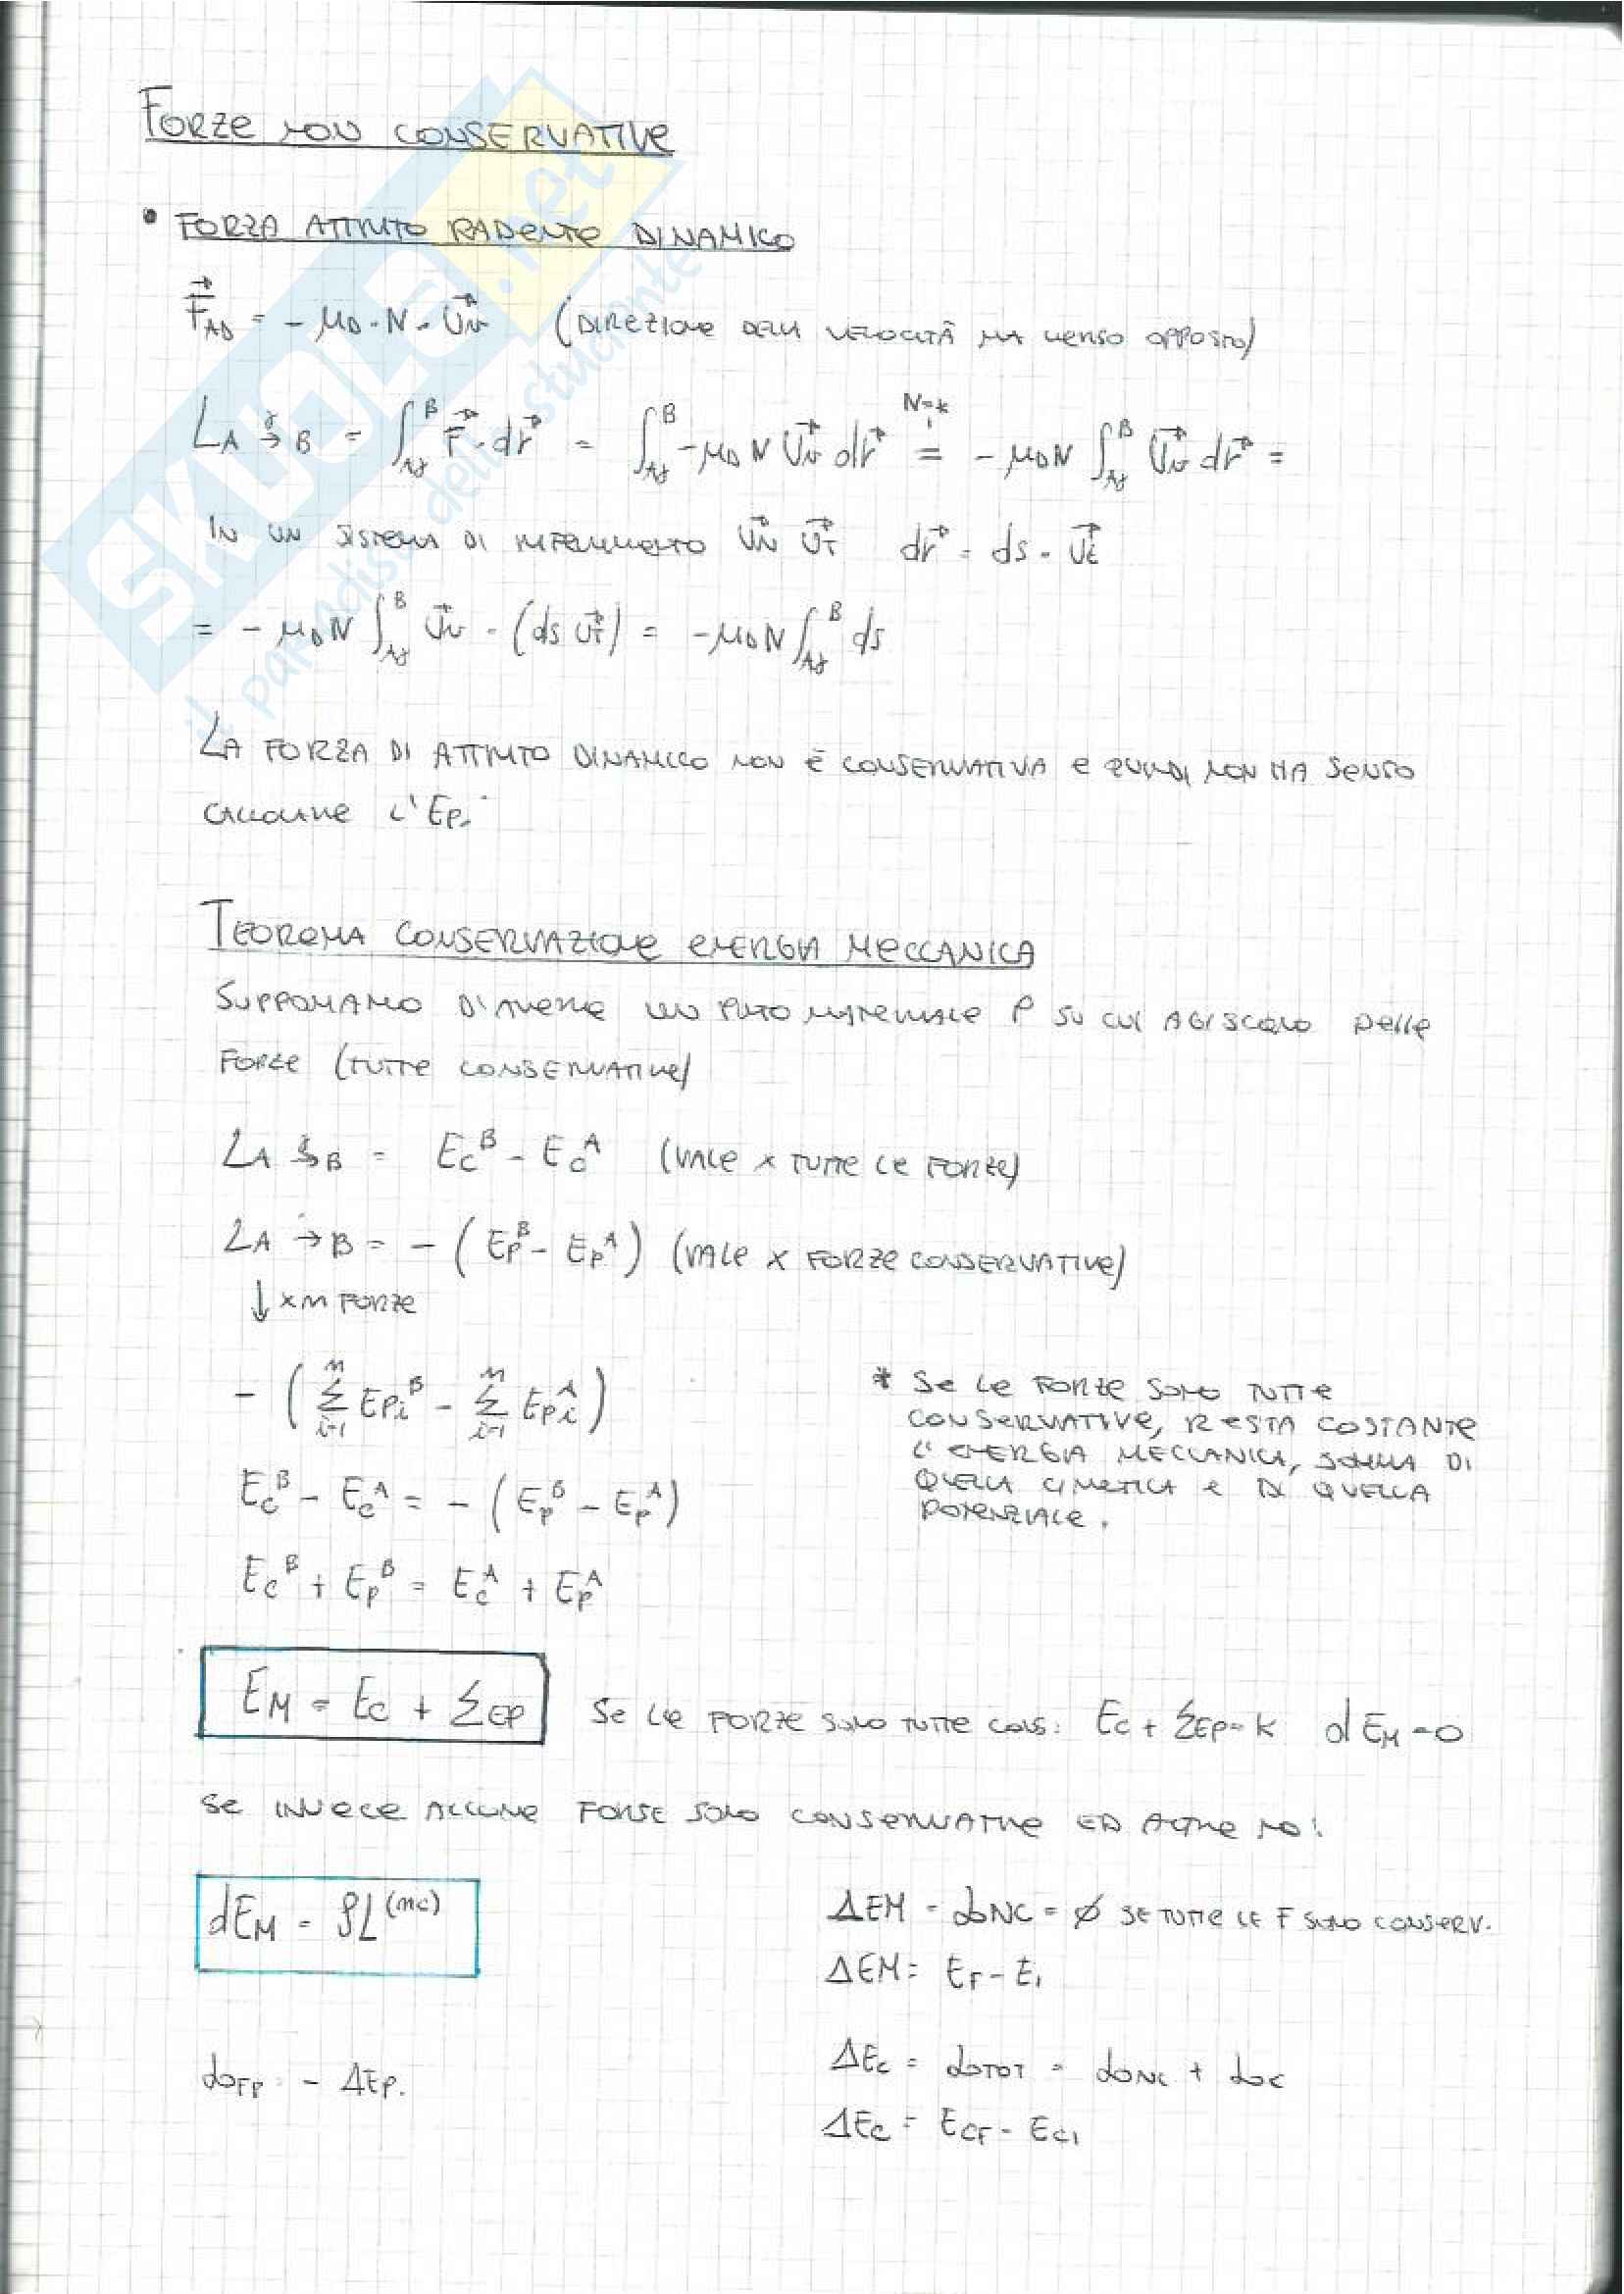 FORZE NON CONSERVATIVE
• FORZA ATTRITO RADENTE DINAMICO
F⃗_AD = - μ_D · N · U⃗_v (DIREZIONE DELLA VELOCITÀ MA VERSO OPPOSTO)
L_A →^γ B = ∫_Aγ^B F⃗ · dr⃗ = ∫_Aγ^B -μ_D N U⃗_v dr⃗ =^(N=k) - μ_D N ∫_Aγ^B U⃗_v dr⃗ =
IN UN SISTEMA DI RIFERIMENTO U⃗_N U⃗_T dr⃗ = ds · U⃗_t
= - μ_D N ∫_Aγ^B U⃗_v · (ds U⃗_T) = -μ_D N ∫_Aγ^B ds
LA FORZA DI ATTRITO DINAMICO NON È CONSERVATIVA E QUINDI NON HA SENSO
CALCOLARE L'Ep.
TEOREMA CONSERVAZIONE ENERGIA MECCANICA
SUPPONIAMO DI AVERE UN PUNTO MATERIALE P SU CUI AGISCONO DELLE
FORZE (TUTTE CONSERVATIVE)
L_A →^γ B = E_C^B - E_C^A (VALE x TUTTE LE FORZE)
L_A → B = - (E_P^B - E_P^A) (VALE x FORZE CONSERVATIVE)
↓ x n FORZE
- (Σ_{i=1}^n E_Pi^B - Σ_{i=1}^n E_Pi^A)
* SE LE FORZE SONO TUTTE
CONSERVATIVE, RESTA COSTANTE
L'ENERGIA MECCANICA, SOMMA DI
QUELLA CINETICA E DI QUELLA
POTENZIALE.
E_C^B - E_C^A = - (E_P^B - E_P^A)
E_C^B + E_P^B = E_C^A + E_P^A
E_M = E_C + Σ_EP SE LE FORZE SONO TUTTE CONS: E_C + Σ_EP = k dE_M = 0
SE INVECE ALCUNE FORSE SONO CONSERVATIVE ED ALTRE NO:
dE_M = δL^(nc)
ΔEM = LNC = ∅ SE TUTTE LE F SONO CONSERV.
ΔEM = E_F - E_I
L_FP = - ΔEP.
ΔE_C = L_TOT = L_NC + L_C
ΔE_C = E_CF - E_CI
SKUOLA.net
il paradiso dello studente